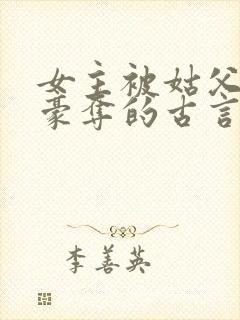 女主被姑父
豪夺的古言
李善英